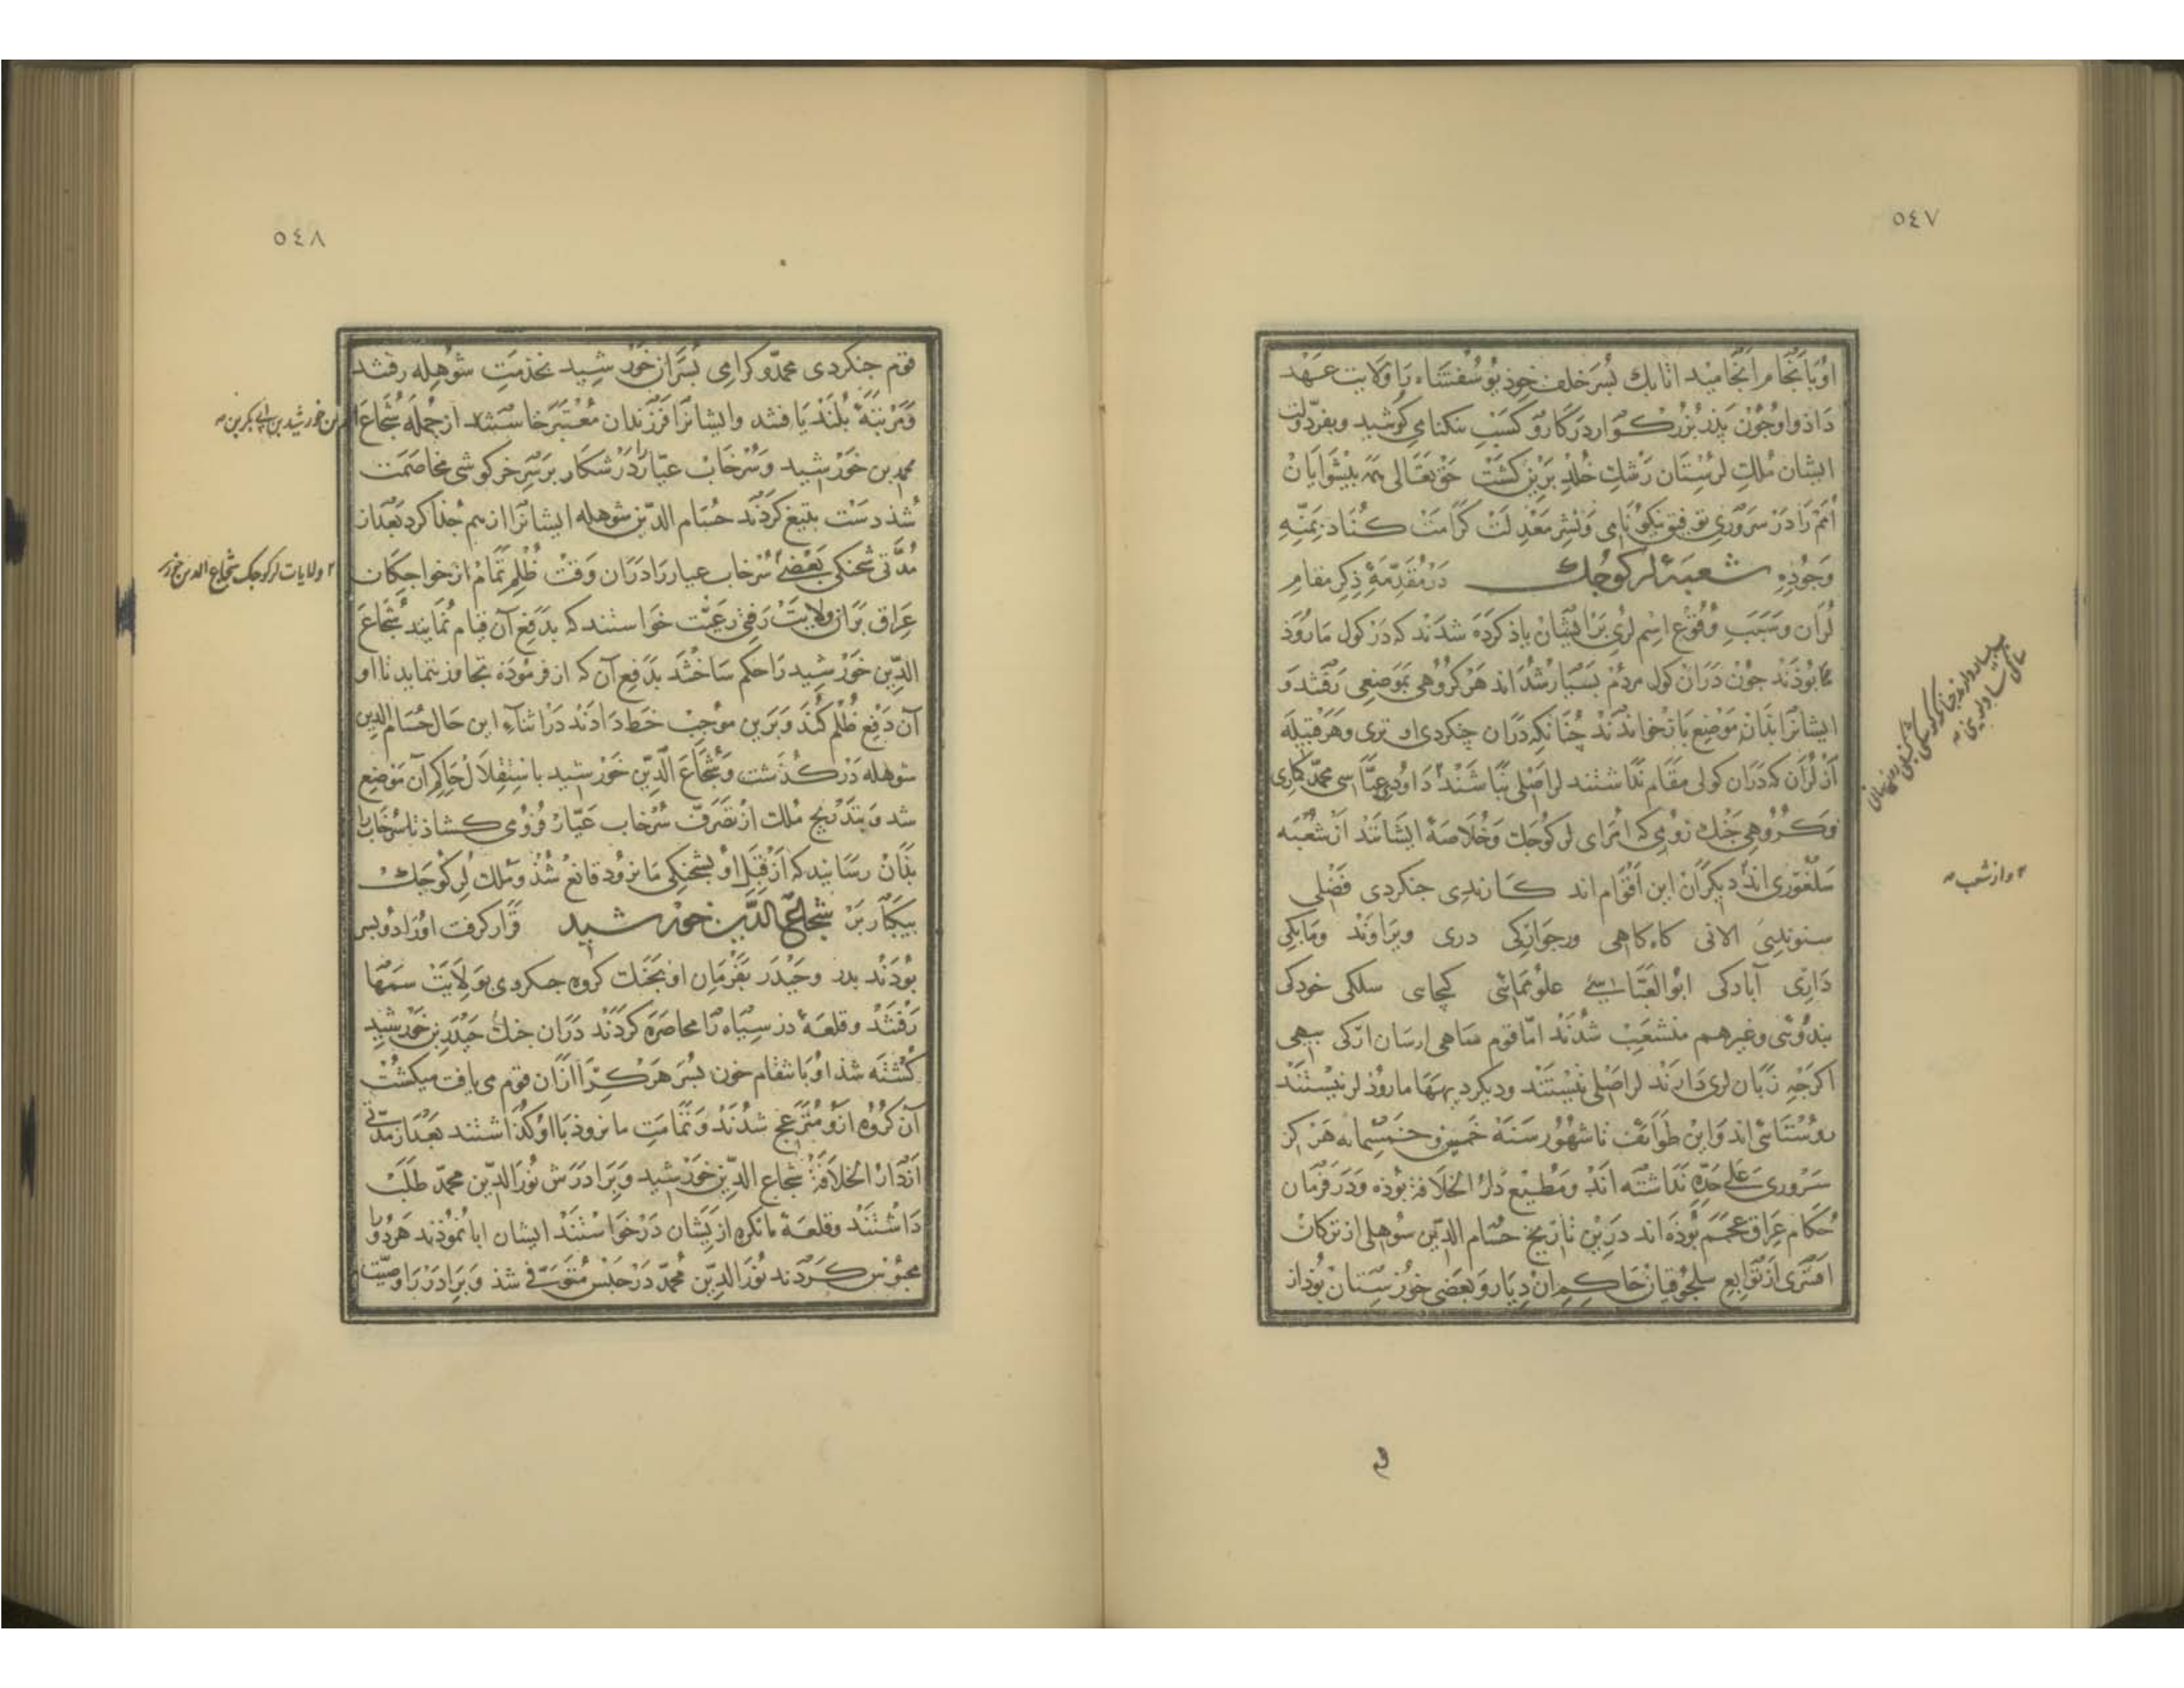 ٥٤٧
او بانجام انجامید اتابک پسر خلف خود یوسفشاه را ولایت عهد
داد و او چون پدر بزرگوار در کار و کسب نیکنامی کوشید و بفر دولت
ایشان ملک لرستان رشک خلد برین کشت حق تعالی همه پیشوایان
امم را در سروری توفیق نیکو نامی و نشر معدلت کرامت کناد بمنه
وجوده شعبهٔ لر کوچک در مقدمهٔ ذکر مقام
لران و سبب وقوع اسم لری بر ایشان یاذ کرده شدند که در کول مانروذ
بوذند چون دران کول مردم بسیار شدند هر کروهی بموضعی رفتند و
ایشانرا بذان موضع باز خواندند چنانکه دران جنکردی و اوتری و هر قبیله
از لران که دران کول مقام نداشتند لر اصلی نباشند داودی عباسی محمد کماری
و کروهی جنک روی که امرای لر کوچک و خلاصهٔ ایشانند از شعبه
سلغوری اند دیکران این اقوام اند کارندی جنکردی فضلی
سنوندی الانی کاه کاهی ورجوازکی دری ویراوند ومابکی
داری آبادکی ابوالعباسی علو مماسی کیجای سلکی خودکی
بندوئی و غیرهم منشعب شدند اما قوم ساهی ارسان ارکی بیهی
اکرچه زبان لری دارند لر اصلی نیستند و دیکر دیهها مانروذ لر نیستند
روستائی اند و این طوائف تا شهور سنه خمسین و خمسمایه هرکز
سروری علی حده نداشته اند و مطیع دار الخلافة بوذه و در فرمان
حکام عراق عجم بوذه اند درین تاریخ حسام الدین سوهلی از ترکان
افشری از توابع سلجوقیان حاکم ان دیار و بعضی خوزستان بوذ از
۲ و از شعب
٥٤٨
قوم جنکردی محمد و کرامی پسران خورشید بخدمت شوهله رفتند
و مرتبهٔ بلند یافتند و ایشانرا فرزندان معتبر خاستند از جمله شجاع الدین خورشید بن ابی بکر بن
محمد بن خورشید و سرخاب عیار در شکار بر سر خرکوشی مخاصمت
شد دست بتیغ کردند حسام الدین شوهله ایشانرا از هم جدا کرد بعد از
مدتی شحنکی بعضی سرخاب عیار را دران وقت ظلم تمام از خواجکان
۲ ولایات لر کوچک شجاع الدین خورشید
عراق بران ولایت رفتی رعیت خواستند که بدفع آن قیام نمایند شجاع
الدین خورشید را حکم ساختند بدفع آن که از فرموده تجاوز ننماید تا او
آن دفع ظلم کند و برین موجب خط دادند در اثناء این حال حسام الدین
شوهله در کذشت و شجاع الدین خورشید باستقلال حاکم آن موضع
شد و بتدریج ملک از تصرف سرخاب عیار فزو می کشاد تا سرخاب را
بذان رسانید که از قبل او بشحنکی مانرود قانع شذ و ملک لر کوچک
بیکبار بر شجاع الدین خورشید قرار کرفت او را دو پسر
بوذند بدر و حیدر بفرمان او بجنک کروه جنکردی بولایت سمها
رفتند و قلعهٔ دز سیاه را محاصره کردند دران جنک حیدر بن خورشید
کشته شذ او بانتقام خون پسر هر کرا ازان قوم می یافت میکشت
آن کروه ازو متزعج شدند و تمامت مانروذ با او کذاشتند بعد از مدتی
از دار الخلافة شجاع الدین خورشید و برادرش نور الدین محمد طلب
داشتند و قلعهٔ مانکره از یشان درخواستند ایشان ابا نموذند هر دو را
محبوس کردند نور الدین محمد در حبس متوفی شذ و برادر را وصیت